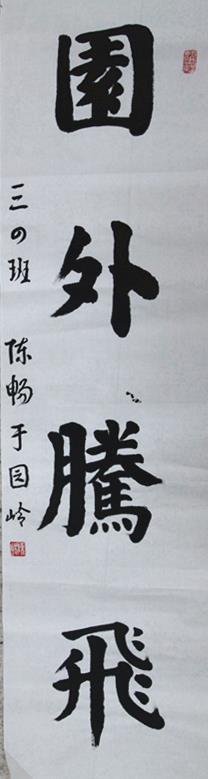 園外騰飛
三の班 陈畅于园岭